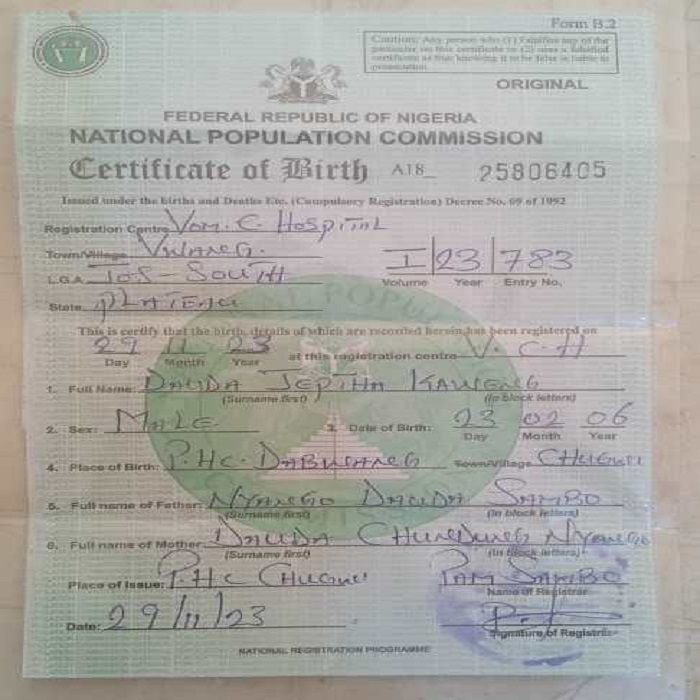 Form B.2
Caution: Any person who (1) falsifies any of the
particular on this certificate or (2) uses a falsified
certificate as true knowing it to be false is liable to
prosecution.
ORIGINAL
FEDERAL REPUBLIC OF NIGERIA
NATIONAL POPULATION COMMISSION
Certificate of Birth A18_ 25806405
Issued under the births and Deaths Etc. (Compulsory Registration) Decree No. 69 of 1992
Registration Centre Vom. C. Hospital
Town/Village VWANG.
L.G.A JOS-SOUTH
I 23 783
Volume Year Entry No.
State PLATEAU
This is certify that the birth, details of which are recorded herein has been registered on
29 11 23 at this registration centre V. C. H
Day Month Year
1. Full Name: DAUDA JEPTHA KAWENG
(Surname first) (In block letters)
2. Sex: MALE 3. Date of Birth: 23 02 06
Day Month Year
4. Place of Birth: P.HC. Town/Village CHUGWI
5. Full name of Father: NYANGO DAUDA SAMBO
(Surname first) (In block letters)
6. Full name of Mother: DAUDA NYANGO
(Surname first) (In block letters)
Place of Issue: P.HC CHUGWI PAM SAMBO
Name of Registrar
Date: 29/11/23
Signature of Registrar
NATIONAL REGISTRATION PROGRAMME